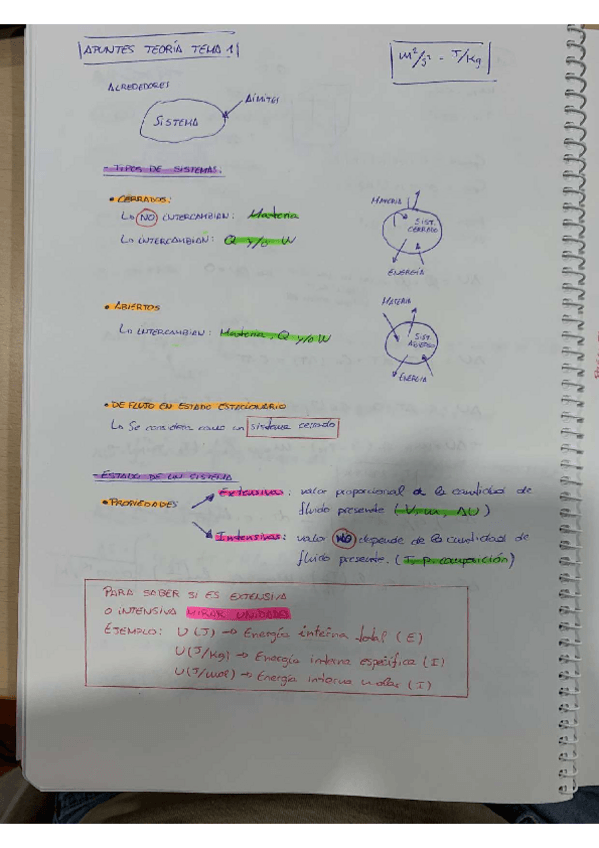 APUNTES TEORÍA TEMA 1
m²/s² - J/Kg
ALREDEDORES
LÍMITES
SISTEMA
- TIPOS DE SISTEMAS:
• CERRADOS:
Lo NO INTERCAMBIAN: Materia
Lo INTERCAMBIAN: Q y/o W
MATERIA
SIST.
CERRADO
ENERGÍA
• ABIERTOS
Lo INTERCAMBIAN: Materia, Q y/o W
MATERIA
SIST
ABIERTO
ENERGÍA
• DE FLUJO EN ESTADO ESTACIONARIO
Lo Se considera como un sistema cerrado
- ESTADO DE UN SISTEMA
• PROPIEDADES
Extensiva: valor proporcional a la cantidad de
fluido presente (V, m, ΔU)
Intensivas: valor NO depende de la cantidad de
fluido presente. (T, p, composición)
PARA SABER SI ES EXTENSIVA
O INTENSIVA MIRAR UNIDADES
EJEMPLO: U (J) → Energía interna total (E)
U (J/Kg) → Energía interna específica (I)
U (J/mol) → Energía interna molar (I)